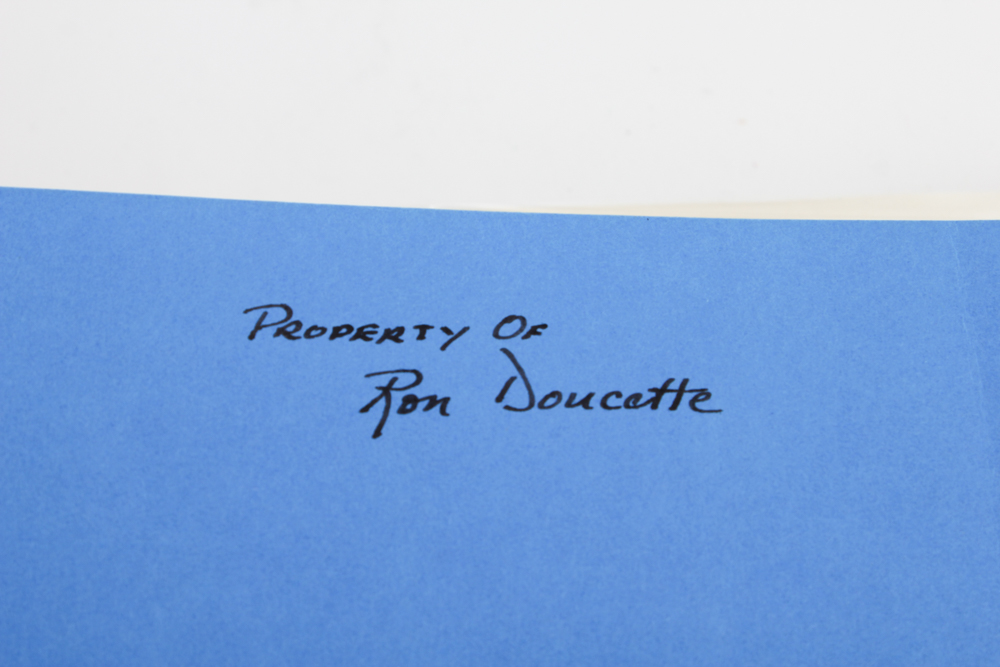 Property Of
Ron Doucette